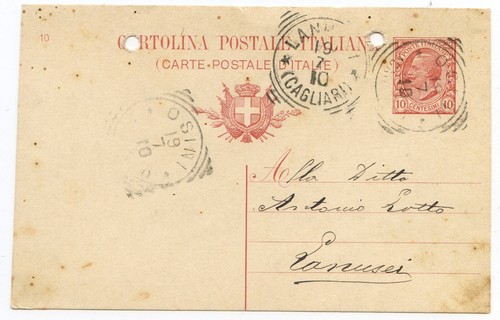 10
CARTOLINA POSTALE ITALIANA
(CARTE-POSTALE D'ITALIE)
19
7
10
(CAGLIARI)
10 CENTESIMI 10
OSINI
19
7
10
Alla Ditta
Antonio Lotto
Lanusei